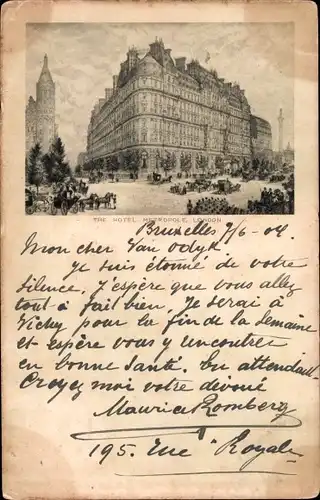 THE HOTEL METROPOLE, LONDON
Bruxelles 7/6 - 04.
Mon cher Van Odyk
Je suis étonné de votre
silence, J'espère que vous allez
tout à fait bien. Je serai à
Vichy pour la fin de la semaine
et espère vous y rencontrer
en bonne santé. En attendant
Croyez moi votre dévoué
Maurice Romberg
195. Rue Royale